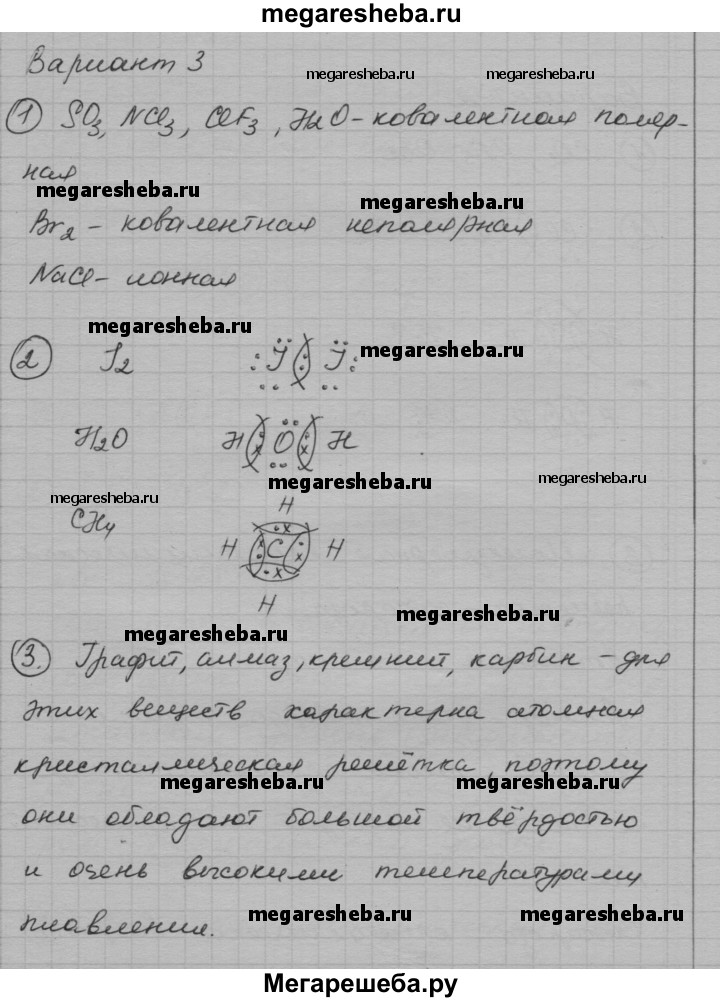 megaresheba.ru
Вариант 3
megaresheba.ru megaresheba.ru
① SO3, NCl3, ClF3, H2O - ковалентная поляр-
ная
megaresheba.ru megaresheba.ru
Br2 - ковалентная неполярная
NaCl - ионная
megaresheba.ru
② I2 I I megaresheba.ru
H2O H O H
megaresheba.ru megaresheba.ru
megaresheba.ru
CH4 H
H C H
H
megaresheba.ru
megaresheba.ru
③. Графит, алмаз, кремний, карбин - для
этих веществ характерна атомная
кристаллическая решётка, поэтому
megaresheba.ru megaresheba.ru
они обладают большой твёрдостью
и очень высокими температурами
плавления.
megaresheba.ru megaresheba.ru
Мегарешеба.ру